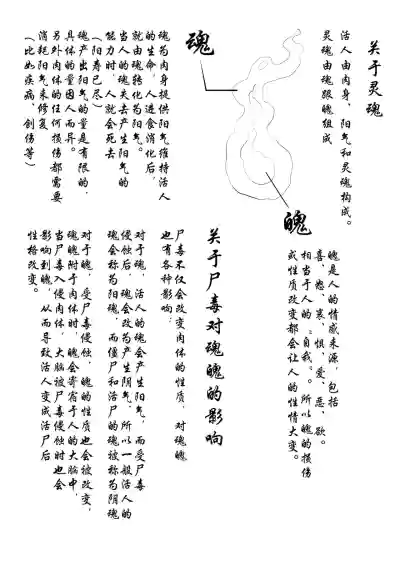 关于灵魂
活人由肉身，阳气和灵魂构成。
灵魂由魂跟魄组成
魂
魂为肉身提供阳气维持活人
的生命，人进食消化后，
就由魂转化为阳气。
当人的魂失去产生阳气的
能力时，人就会死去
（阳寿已尽）
魂产出阳气的量是有限的，
具体的量因人而异。
另外肉体的任何损伤都需要
消耗阳气来修复
（比如疾病，创伤等）
魄
魄是人的情感来源，包括
喜，愁，哀，惧，爱，恶，欲。
相当于人的“自我”。所以魄的损伤
或性质改变都会让人的性情大变。
关于尸毒对魂魄的影响
尸毒不仅会改变肉体的性质，对魂魄
也有各种影响：
对于魂，活人的魂会产生阳气，而受尸毒
侵蚀后，魂会改为产生阴气，所以一般活人的
魂会称为阳魂，而僵尸和活尸的魂被称为阴魂
对于魄，受尸毒侵蚀，魄的性质也会被改变，
魂魄附于肉体时，魄会寄宿于人的大脑中，
当尸毒入侵肉体，大脑被尸毒侵蚀时也会
影响到魄，从而导致活人变成活尸后
性格改变。